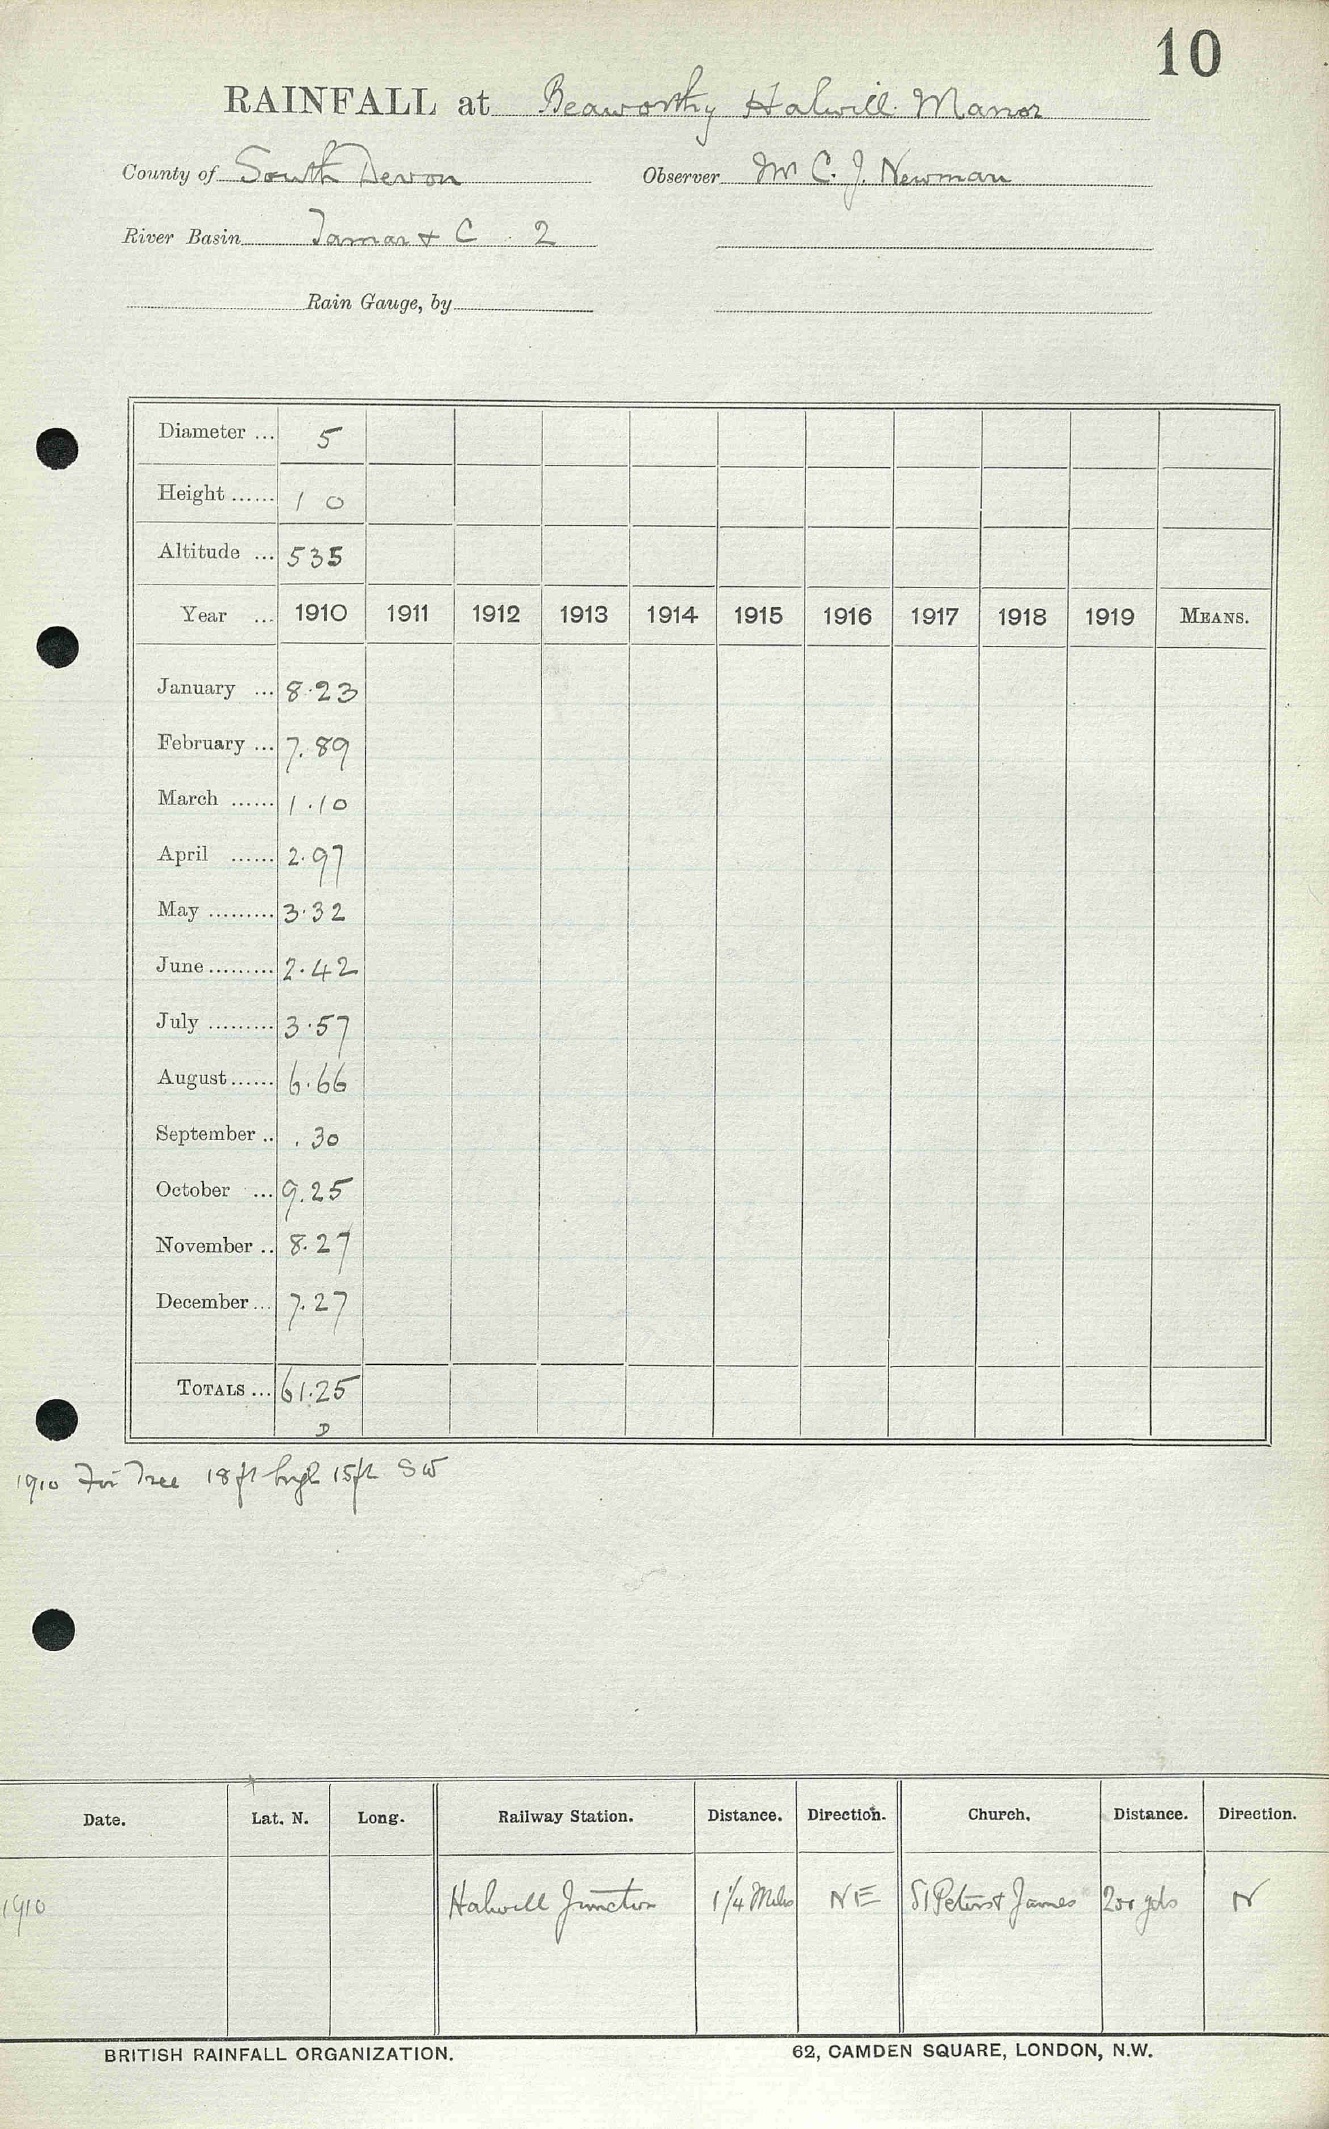 10
RAINFALL at Beaworthy Halwill Manor
County of South Devon Observer Mr C. J. Newman
River Basin Tamar & C 2
Rain Gauge, by
Diameter ... 5
Height ...... 1 0
Altitude ... 535
Year ... 1910 1911 1912 1913 1914 1915 1916 1917 1918 1919 MEANS.
January ... 8.23
February ... 7.89
March ...... 1.10
April ...... 2.97
May ......... 3.32
June ......... 2.42
July ......... 3.57
August ...... 6.66
September .. .30
October ... 9.25
November .. 8.27
December ... 7.27
TOTALS ... 61.25
D
1910 Fir Tree 18ft high 15ft SW
Date. Lat. N. Long. Railway Station. Distance. Direction. Church. Distance. Direction.
1910 Halwill Junction 1 1/4 Miles NE St Peter & James 200 yds N
BRITISH RAINFALL ORGANIZATION. 62, CAMDEN SQUARE, LONDON, N.W.